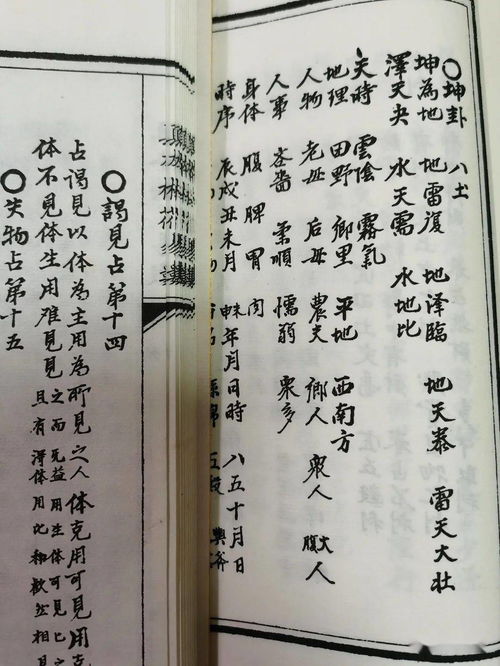 ○坤卦 八土
坤為地 地雷復 地泽臨 地天泰 雷天大壮
澤天夬 水天需 水地比
天時 雲陰 霧氣
地理 田野 鄉里 平地 西南方
人物 老母 后母 農夫 鄉人 衆人 大腹人
人事 吝嗇 柔順 懦弱 衆多
身体 腹 脾 胃 肉
時序 辰戌丑未月 未申年月日時 八五十月日
○謁見占第十四
占謁見以体為主用為所見之人体克用可見用克
体不見体生用难見見之而无益用生体可見
且有得体用比和歡然相見
○失物占第十五